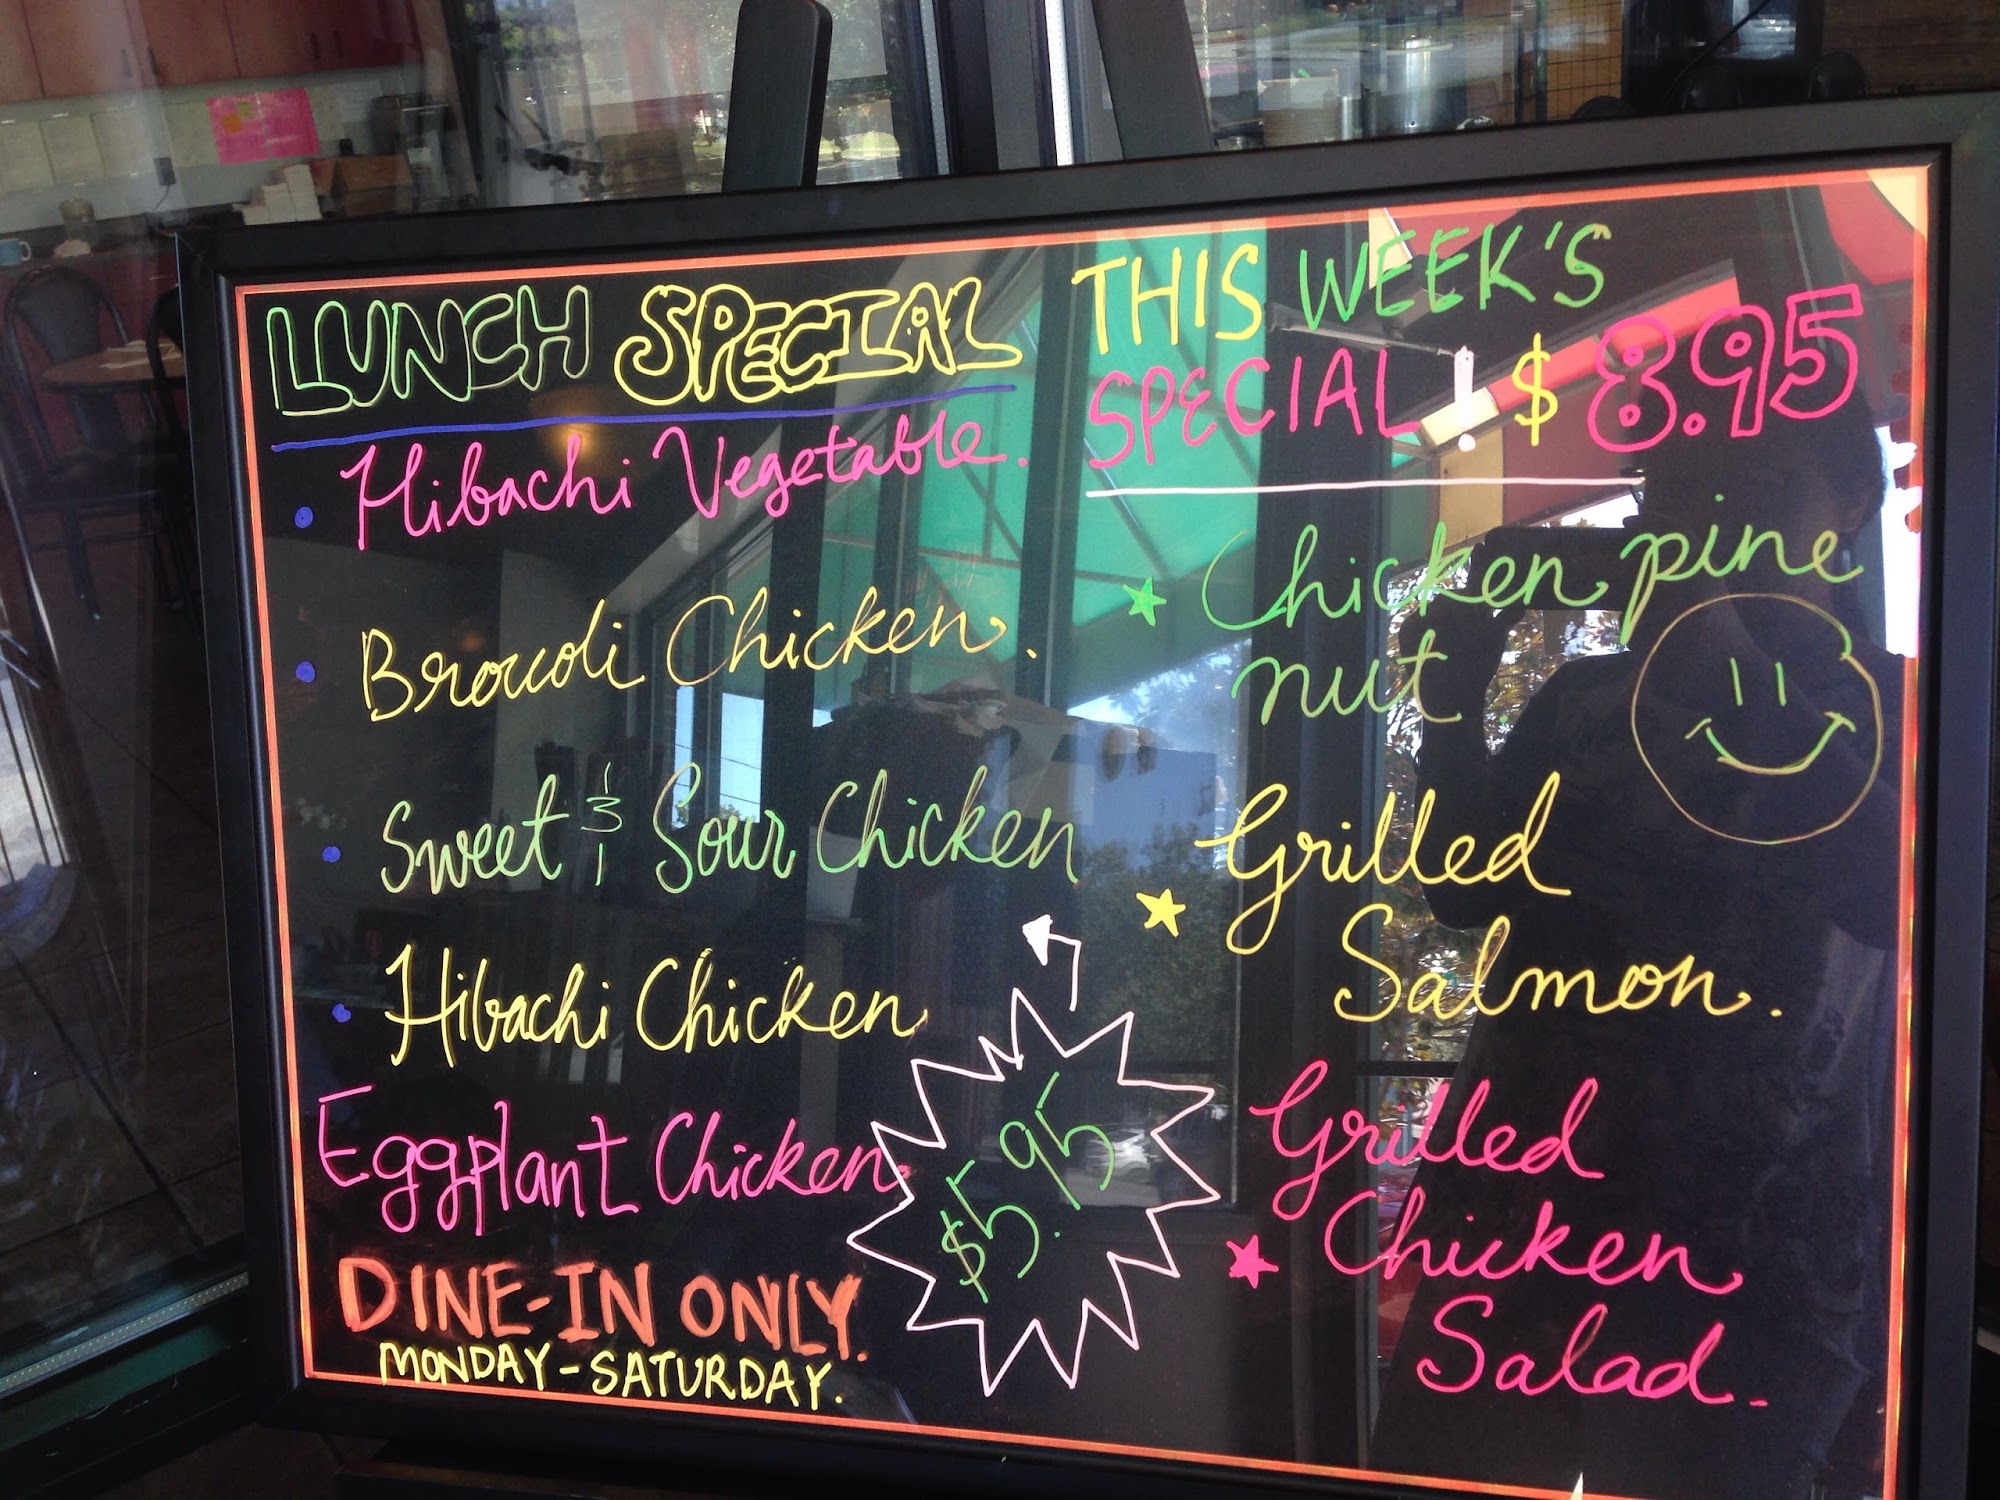 LUNCH SPECIAL
Hibachi Vegetable.
Broccoli Chicken.
Sweet & Sour Chicken
Hibachi Chicken
Eggplant Chicken
$5.95
DINE-IN ONLY.
MONDAY - SATURDAY.
THIS WEEK'S
SPECIAL! $8.95
Chicken pine
nut.
Grilled
Salmon.
Grilled
Chicken
Salad.